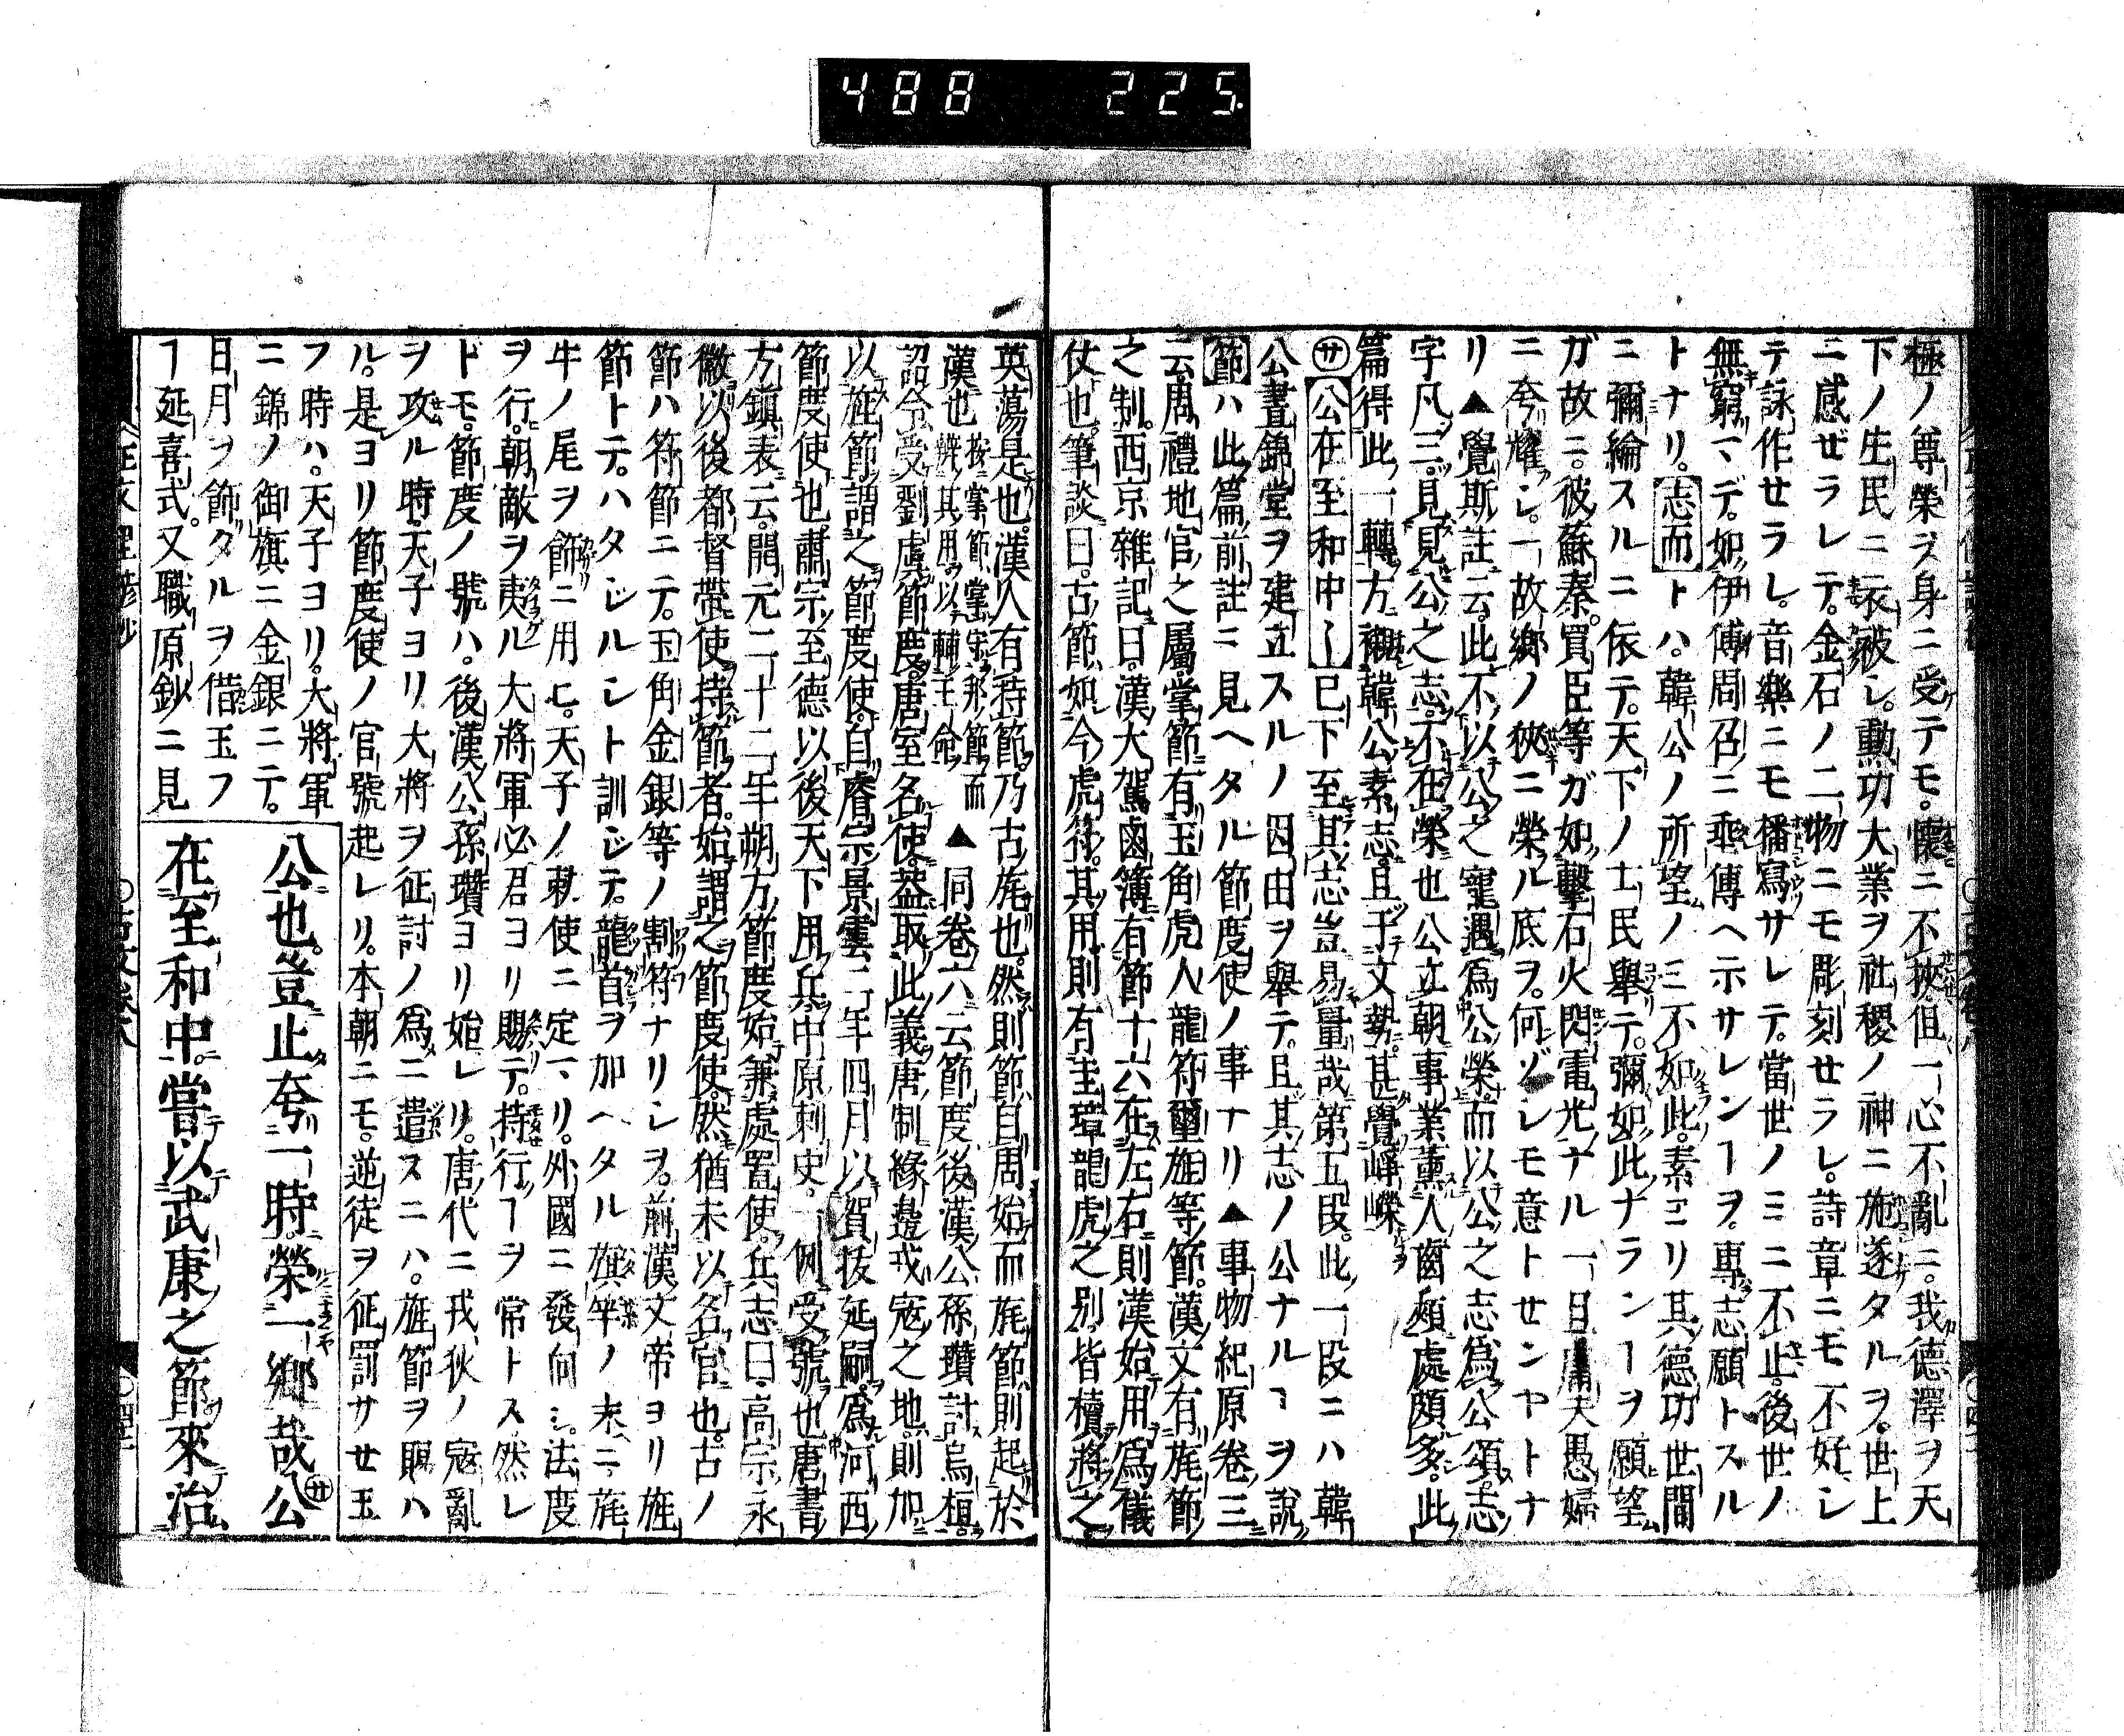 488 225
極ノ尊榮ヲ身ニ受テモ。懷ニ不挾。但一心不亂ニ。我德澤ヲ天
下ノ生民ニ衣被シ。勳功大業ヲ社稷ノ神ニ施遂タルヲ。世上
ニ感ゼラレテ。金石ノ二物ニモ彫刻セラレ。詩章ニモ不好シ
テ詠作セラレ。音樂ニモ播寫サレテ。當世ノミニ不止。後世ノ
無窮マデ。如伊傅周召ニ垂傳ヘ示サレンヿヲ。專志願トスル
トナリ。志而トハ。韓公ノ所望ノ三不如此。素ヨリ其德功世間
ニ彌綸スルニ依テ。天下ノ士民舉テ。彌如此ナランヿヲ願望
ガ故ニ。彼蘇秦。買臣等ガ如擊石火閃電光ナル一旦庸夫愚婦
ニ夸耀シ。一故鄉ノ狹ニ榮ル底ヲ。何ゾレモ意トセンヤトナ
リ▲覺斯註云。此不以公之寵遇爲公榮。而以公之志爲公頌。志
字凡三。見見公之志。不在榮也公立朝事業薰人齒頰處頗多。此
篇得此一轉方襯韓公素志。且于文勢。甚覺崢嶸
㊉公在至和中〳〵巳下至其志豈易量哉第五段。此一段ニハ韓
公晝錦堂ヲ建立スルノ因由ヲ舉テ。且其志ノ公ナルヿヲ說
節ハ此篇前註ニ見ヘタル節度使ノ事ナリ▲事物紀原卷三
云。周禮地官之屬。掌節有玉角虎人龍符璽旌等節。漢文有旄節
之制。西京雜記曰。漢大駕鹵簿有節十六在左右則漢始用爲儀
仗也。筆談曰。古節如今虎符。其用則有圭璋龍虎之別。皆櫝將之
英蕩是也。漢人有持節。乃古旄也。然則節自周始而旄節則起於
漢也 按掌節掌守邦節而辨其用。以輔王命 ▲同卷六云節度後漢公孫瓚討烏桓。
詔令受劉虞節度。唐室名使。蓋取此義唐制緣邊戎寇之地。則加
以旌節。謂之節度使。自睿宗景雲二年四月以賀拔延嗣。爲河西
節度使也。肅宗至德以後天下用兵。中原刺史一例受號也唐書
方鎮表云。開元二十二年朔方節度始兼處置使。兵志曰。高宗永
徽以後都督帶使持節者。始謂之節度使。然猶未以名官也。古ノ
節ハ符節ニテ。玉角金銀等ノ割符ナリシヲ。前漢文帝ヨリ旌
節トテ。ハタジルシト訓ジテ。龍首ヲ加ヘタル旗竿ノ末ニ。旄
牛ノ尾ヲ飾ニ用ヒ。天子ノ勅使ニ定マリ。外國ニ發向シ。法度
ヲ行。朝敵ヲ夷ル大將軍必君ヨリ賜テ。持行ヿヲ常トス然レ
ドモ。節度ノ號ハ。後漢公孫瓚ヨリ始レリ。唐代ニ戎狄ノ寇亂
ヲ攻ル時。天子ヨリ大將ヲ征討ノ爲ニ遣スニハ。旌節ヲ賜ハ
ル。是ヨリ節度使ノ官號起レリ。本朝ニモ。逆徒ヲ征罰サセ玉
フ時ハ。天子ヨリ。大將軍
ニ錦ノ御旗ニ金銀ニテ。
日月ヲ飾タルヲ借玉フ
ヿ延喜式。又職原鈔ニ見
公也。豈止夸一時。榮一鄉哉公
在至和中。嘗以武康之節來治